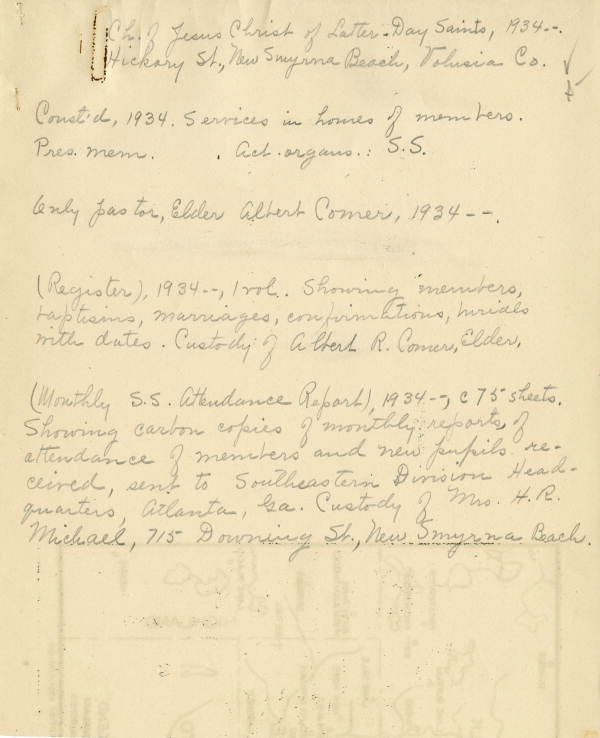 Ch. of Jesus Christ of Latter-Day Saints, 1934--.
Hickory St., New Smyrna Beach, Volusia Co.
Const'd, 1934. Services in homes of members.
Pres. mem. . Act. organs.: S.S.
Only pastor, Elder Albert Comer, 1934--.
(Register), 1934--, 1 vol.. Showing members,
baptisms, marriages, confirmations, burials
with dates. Custody of Albert R. Comer, Elder,
(Monthly S.S. Attendance Report), 1934--, c 75 sheets.
Showing carbon copies of monthly reports of
attendance of members and new pupils re-
ceived, sent to Southeastern Division Head-
quarters, Atlanta, Ga. Custody of Mrs. H. R.
Michael, 715 Downing St., New Smyrna Beach.